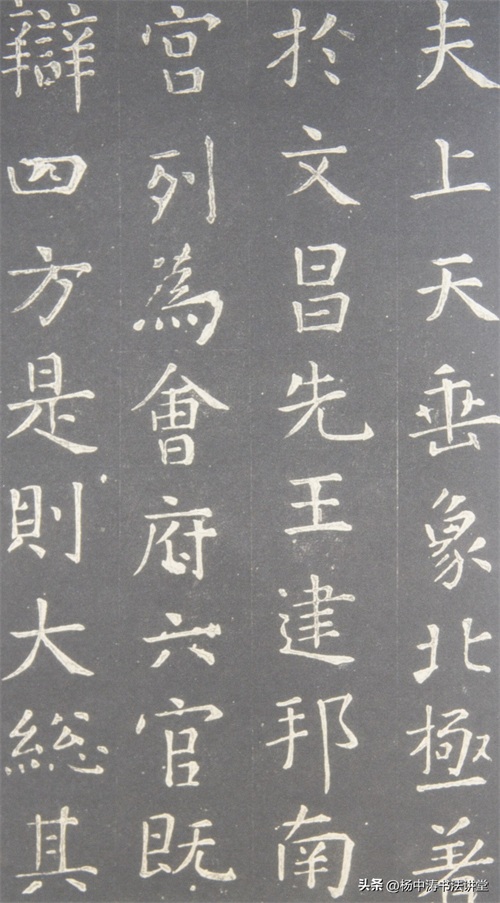 夫上天垂象北極著
於文昌先王建邦南
宮列為會府六官既
辯四方是則大總其
头条@杨中涛书法讲堂